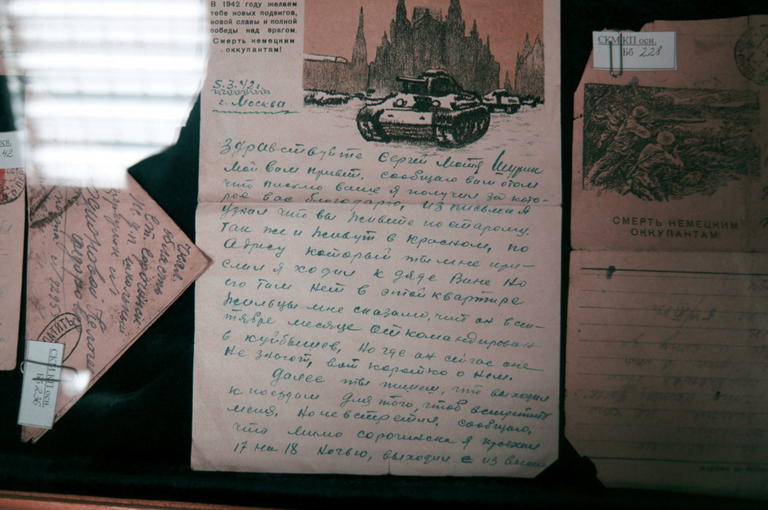 В 1942 году желаем
тебе новых подвигов,
новой славы и полной
победы над врагом.
Смерть немецким
оккупантам!
5.3.42 г.
г. Москва
Здравствуйте Сергей Мотя Шурик
Мой вам привет, сообщаю вам о том
что письмо ваше я получил за кото-
рое вас благодарю, из письма я
узнал что вы живете по старому.
так же и живут в Красном, по
Адресу который ты мне при-
слал я ходил к дяде Ване но
его там нет в этой квартире
Жильцы мне сказали, что он в
тябре месяце откомандирован
в Куйбышев, но где он сейчас они
не знают, вот коротко о нем.
Далее ты пишеш, что выходил
к поездам для того, чтоб встретить
меня, но не встретил, сообщаю,
что мимо сорочинска я проехал
17 на 18 ночью, выходил из
СКМ КП осн.
Бб 228
СМЕРТЬ НЕМЕЦКИМ
ОККУПАНТАМ!
осн.
42
область
СКМ КП осн.
Бб 236